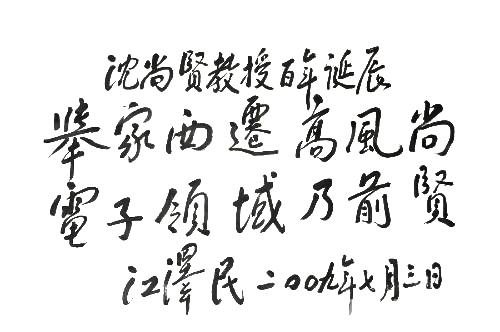 沈尚賢教授百年诞辰
举家西遷高風尚
電子領域乃前賢
江澤民 二〇〇九年七月三日